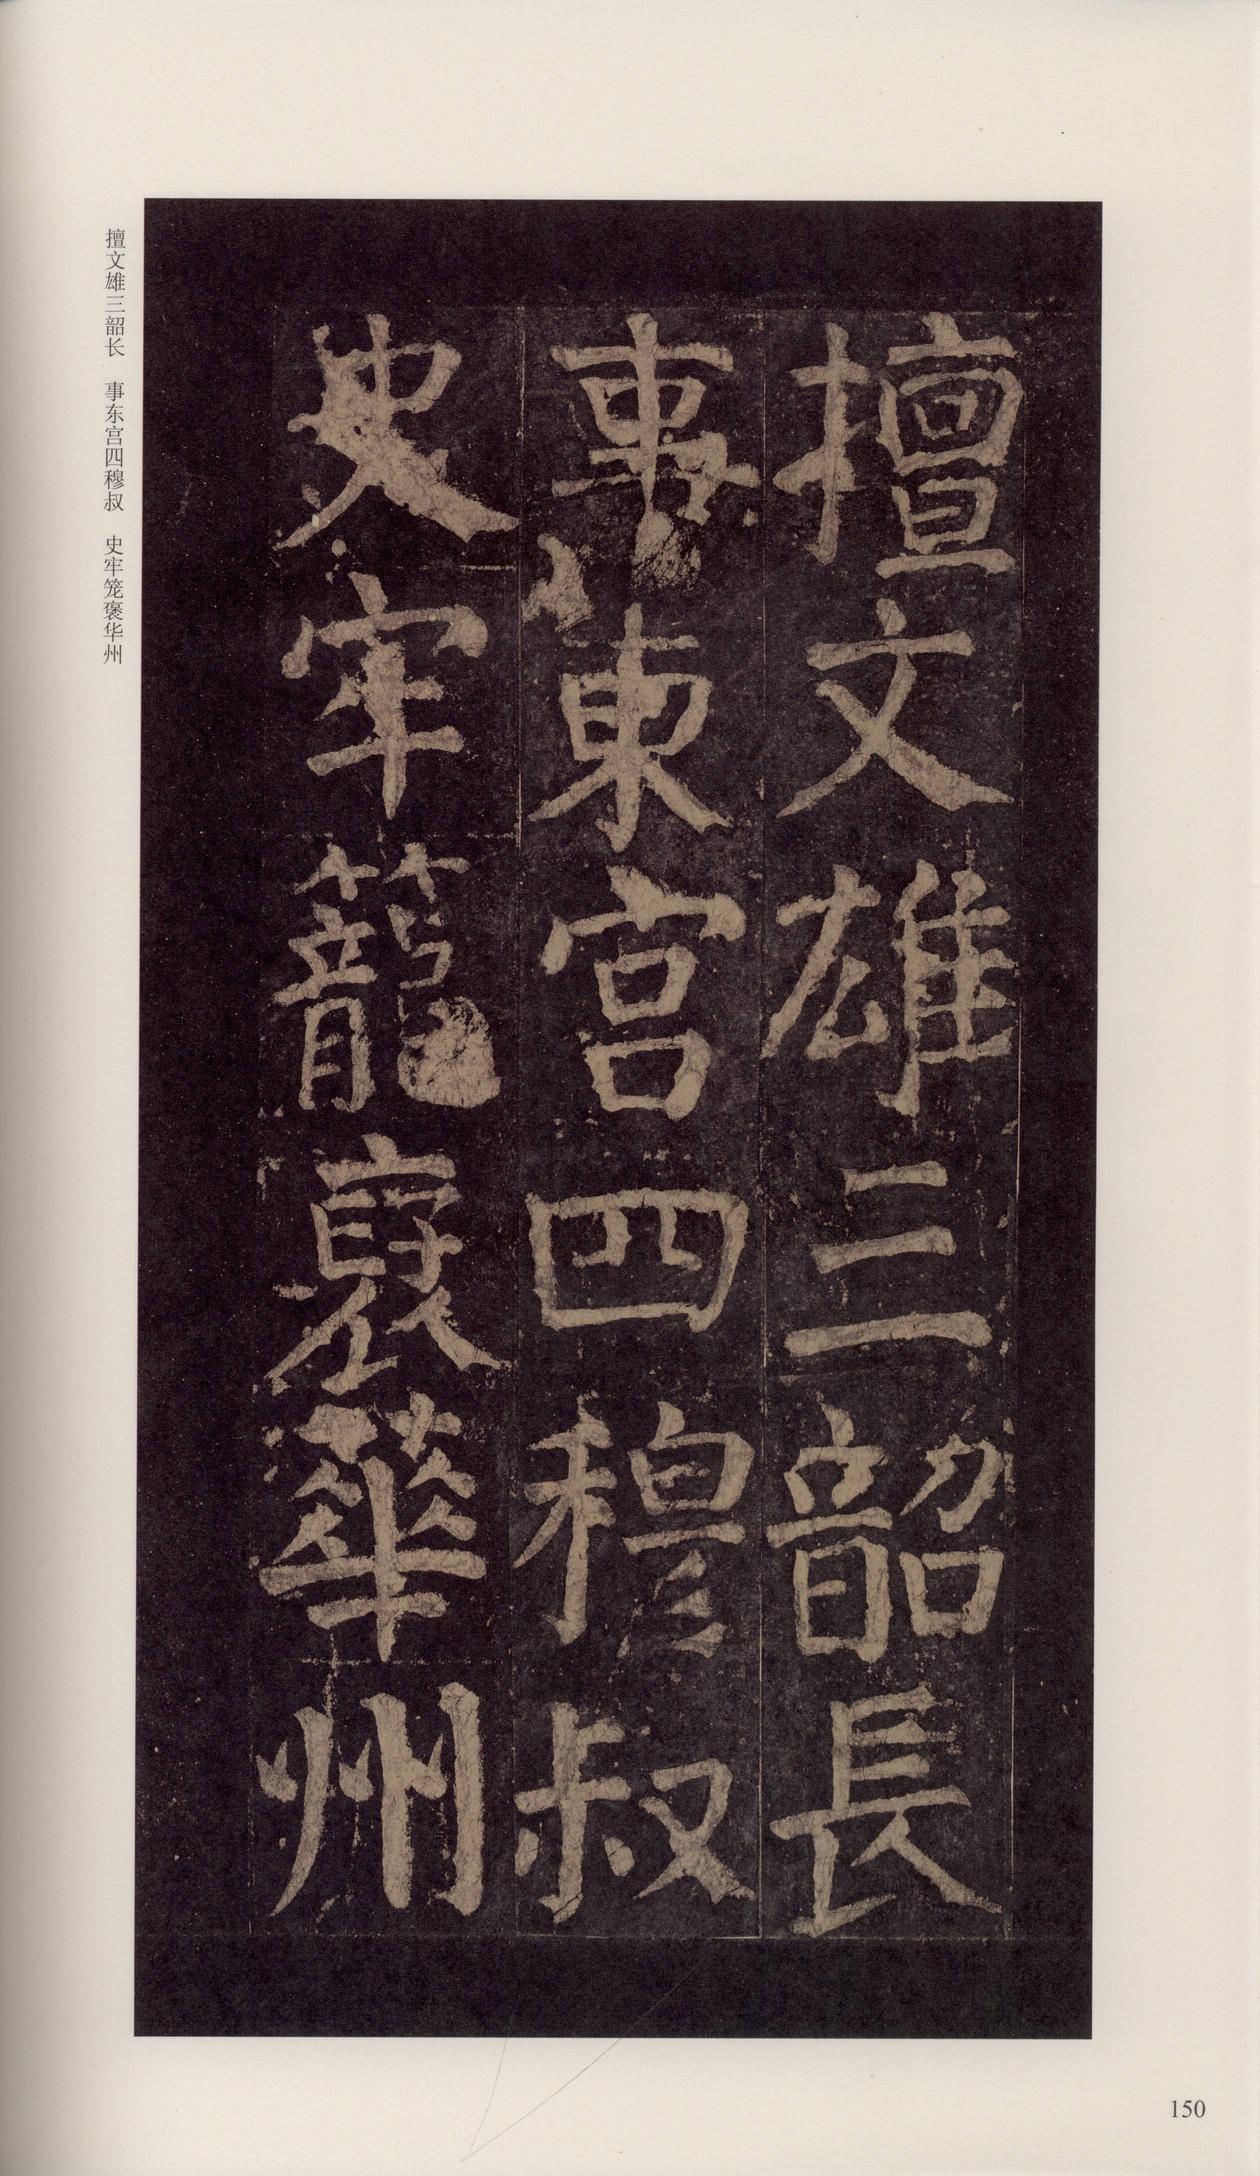 擅文雄三韶長
事東宮四穆叔
史牢籠裦華州
擅文雄三韶长　事东宫四穆叔　史牢笼褒华州
150